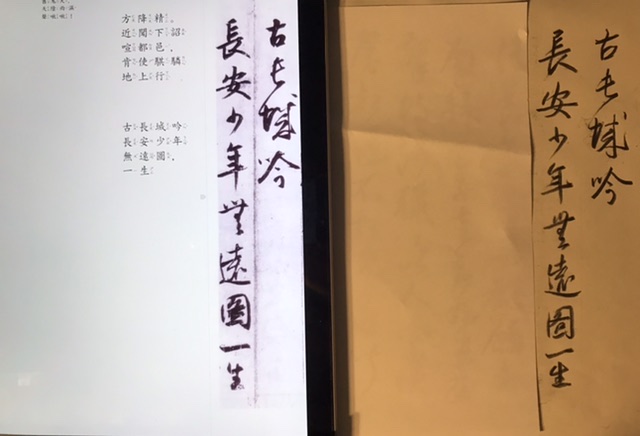 方降精。
近聞下詔
喧都邑。
肯使騏驎
地上行
古長城吟
長安少年
無遠圖。
一生
古長城吟
長安少年無遠圖一生
古長城吟
長安少年無遠圖一生